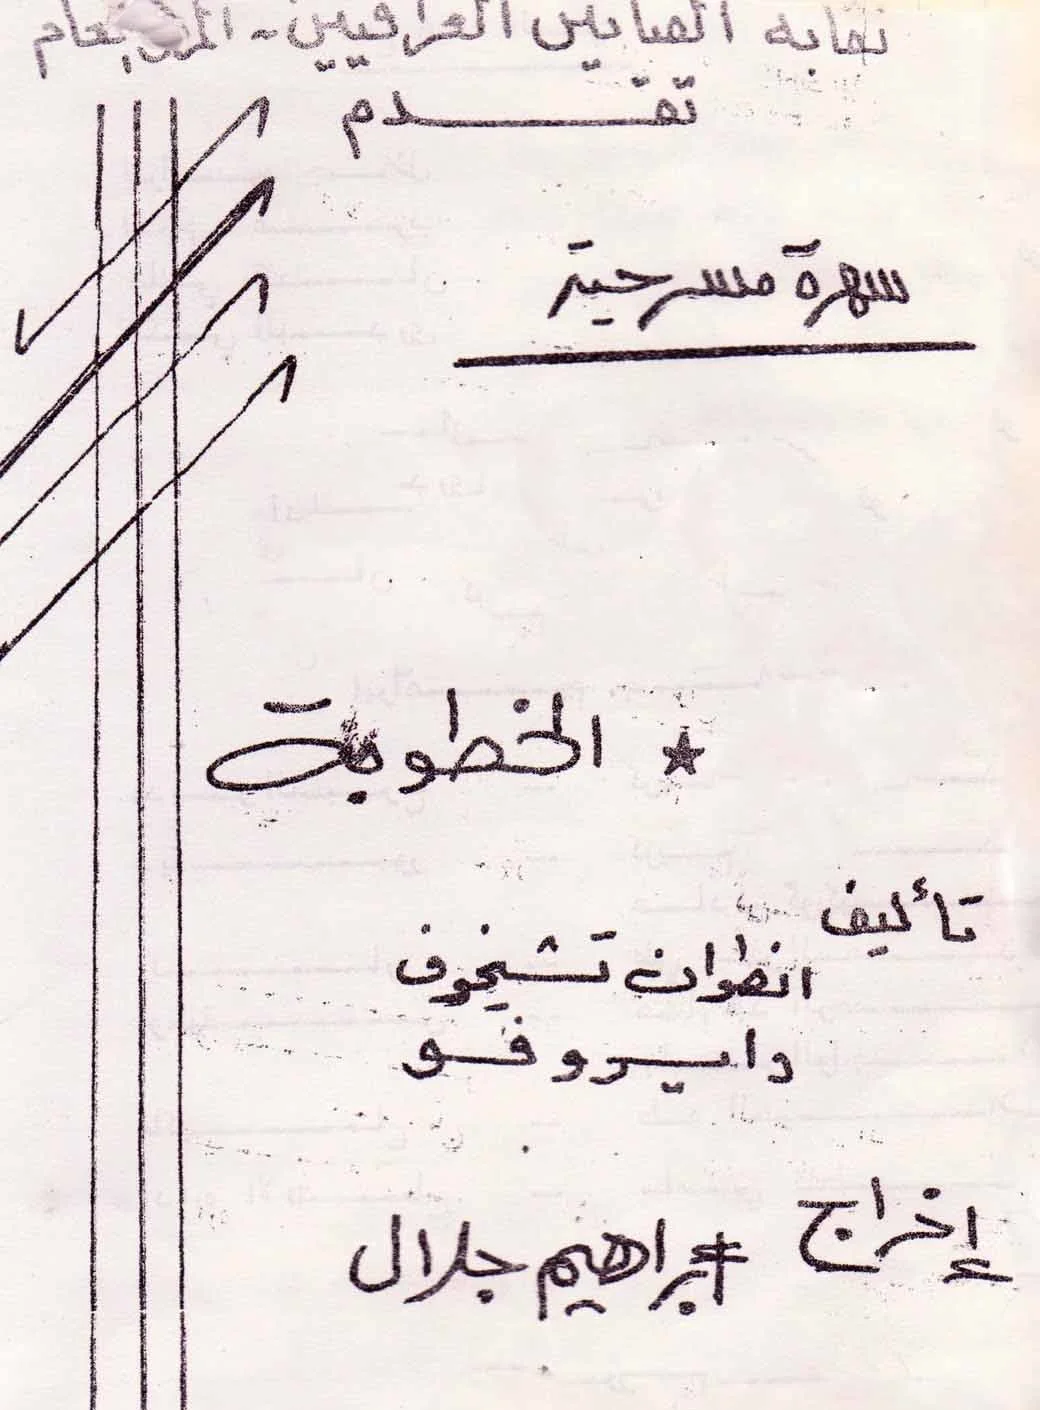 نقابة الفنانين العراقيين - المركز العام
تقدم
سهرة مسرحية
★ الخطوبة
تأليف
انطوان تشيخوف
دايروفو
إخراج
ابراهيم جلال